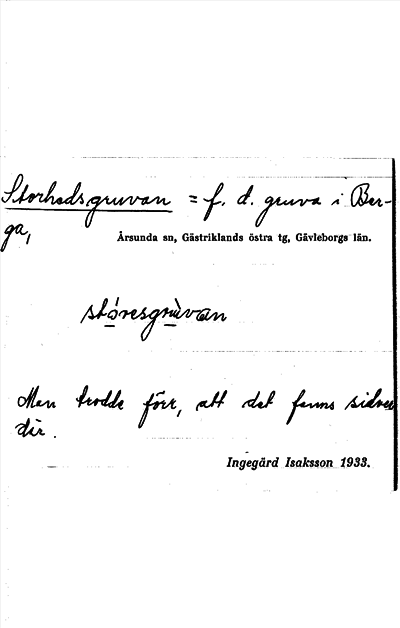 Storhedsgruvan = f. d. gruva i Ber-
ga,
Årsunda sn, Gästriklands östra tg, Gävleborgs län.
stóresgrùvan
Man trodde förr, att det fanns silver
där.
Ingegärd Isaksson 1933.